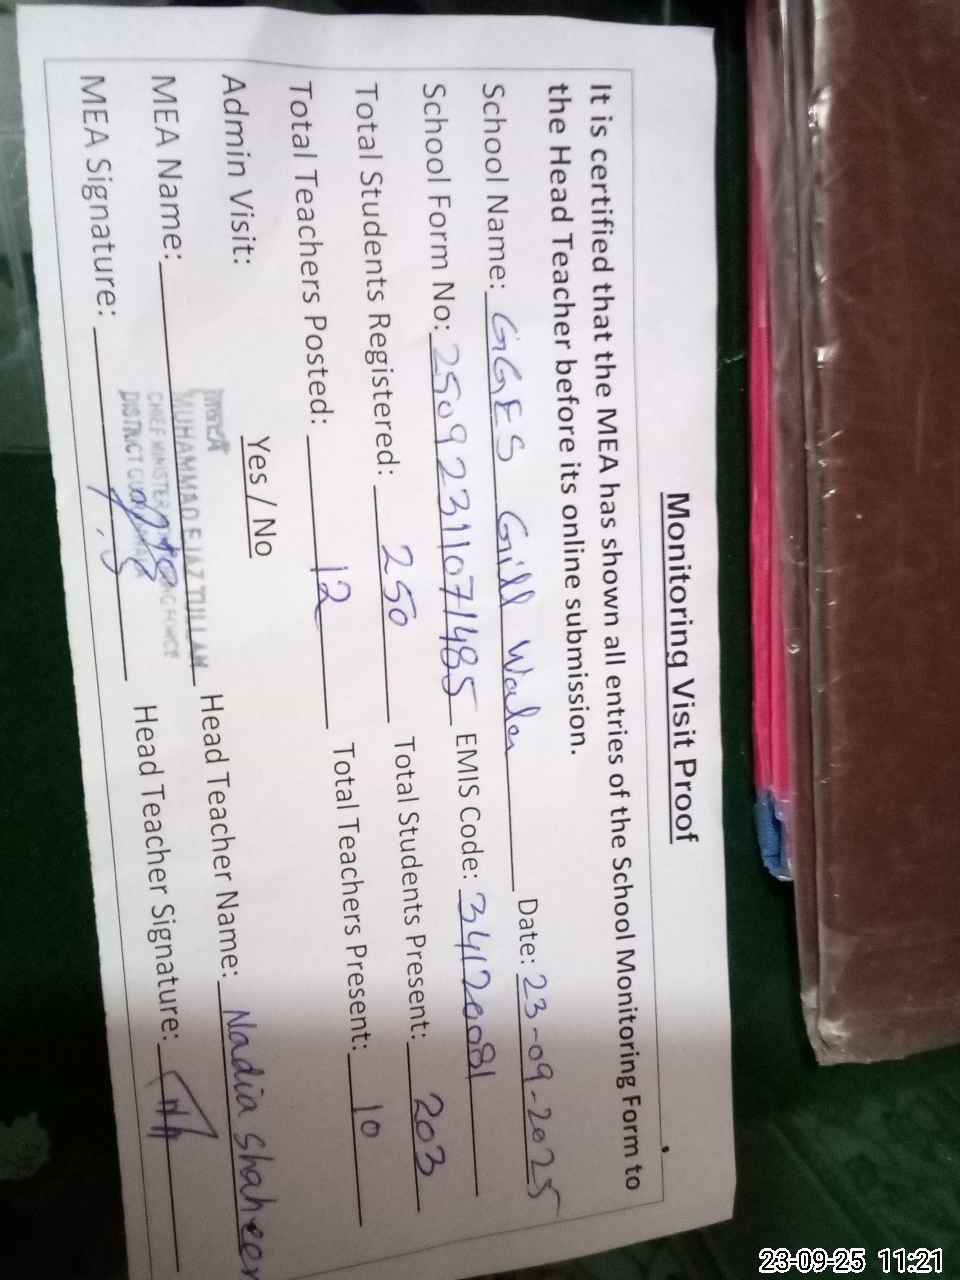 Monitoring Visit Proof
It is certified that the MEA has shown all entries of the School Monitoring Form to
the Head Teacher before its online submission.
School Name: GGES Gill Wala Date: 23-09-2025
School Form No: 25092311071485 EMIS Code: 34120081
Total Students Registered: 250 Total Students Present: 203
Total Teachers Posted: 12 Total Teachers Present: 10
Admin Visit: Yes / No
MEA Name: Head Teacher Name: Nadia Shaheen
MUHAMMAD EJAZ
CHIEF MINISTER
DISTRICT
MEA Signature: Head Teacher Signature:
23-09-25 11:21